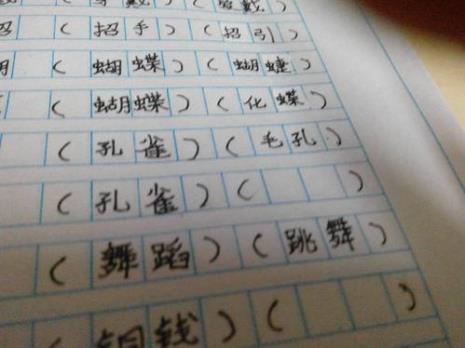 招（招手）（招引）
（蝴蝶）（蝴蝶）
（蝴蝶）（化蝶）
（孔雀）（毛孔）
（孔雀）（ ）
（舞蹈）（跳舞）
（铜钱）（ ）